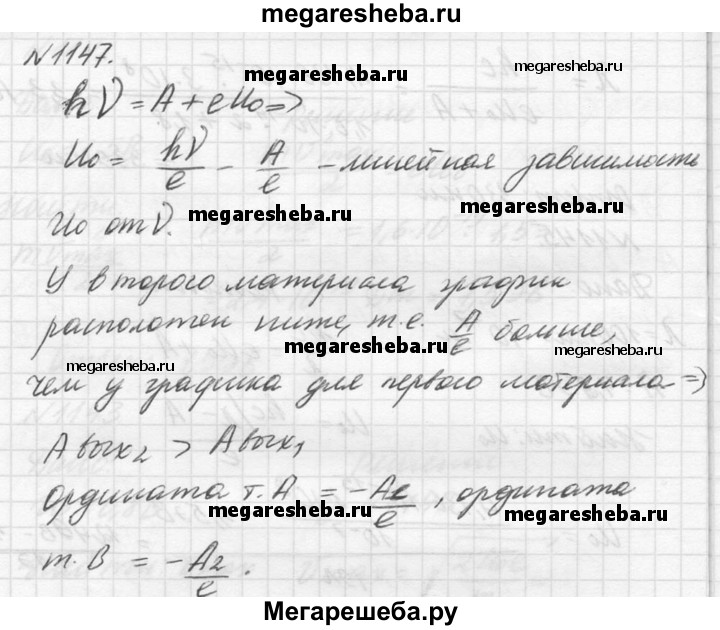 megaresheba.ru
N1147.
megaresheba.ru megaresheba.ru
hν = A + eU₀ =>
U₀ = hν/e - A/e - линейная зависимость
U₀ от ν. megaresheba.ru megaresheba.ru
У второго материала график
расположен ниже, т.е. A/e больше,
megaresheba.ru megaresheba.ru megaresheba.ru
чем у графика для первого материала =>
A вых₂ > A вых₁
ордината т. A = -A₁/e, ордината
megaresheba.ru megaresheba.ru megaresheba.ru
т. B = -A₂/e.
Мегарешеба.ру